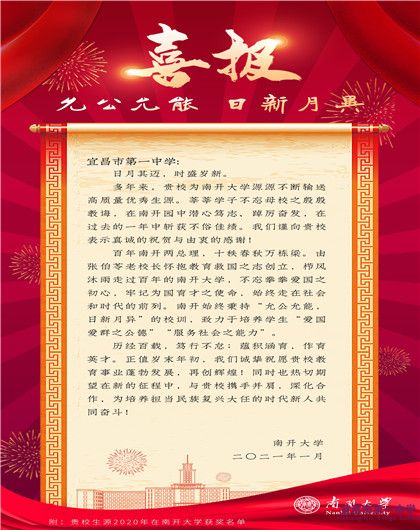 喜报
允公允能 日新月异
宜昌市第一中学：
日月其迈，时盛岁新。
多年来，贵校为南开大学源源不断输送
高质量优秀生源。莘莘学子不忘母校之殷殷
教诲，在南开园中潜心笃志、踔厉奋发，在
过去的一年中斩获不俗佳绩。我们谨向贵校
表示真诚的祝贺与由衷的感谢！
百年南开两总理，十秩春秋万栋梁。由
张伯苓老校长怀抱教育救国之志创立，栉风
沐雨走过百年的南开大学，不忘拳拳爱国之
初心，牢记为国育才之使命，始终走在社会
和时代的前列。南开始终秉持“允公允能，
日新月异”的校训，致力于培养学生“爱国
爱群之公德”“服务社会之能力”。
历经百载，笃行不怠；蕴积涵育，作育
英才。正值岁末年初，我们诚挚祝愿贵校教
育事业蓬勃发展，再创辉煌！同时也热切期
望在新的征程中，与贵校携手并肩，深化合
作，为培养担当民族复兴大任的时代新人共
同奋斗！
南开大学
二〇二一年一月
南开大学
附：贵校生源2020年在南开大学获奖名单